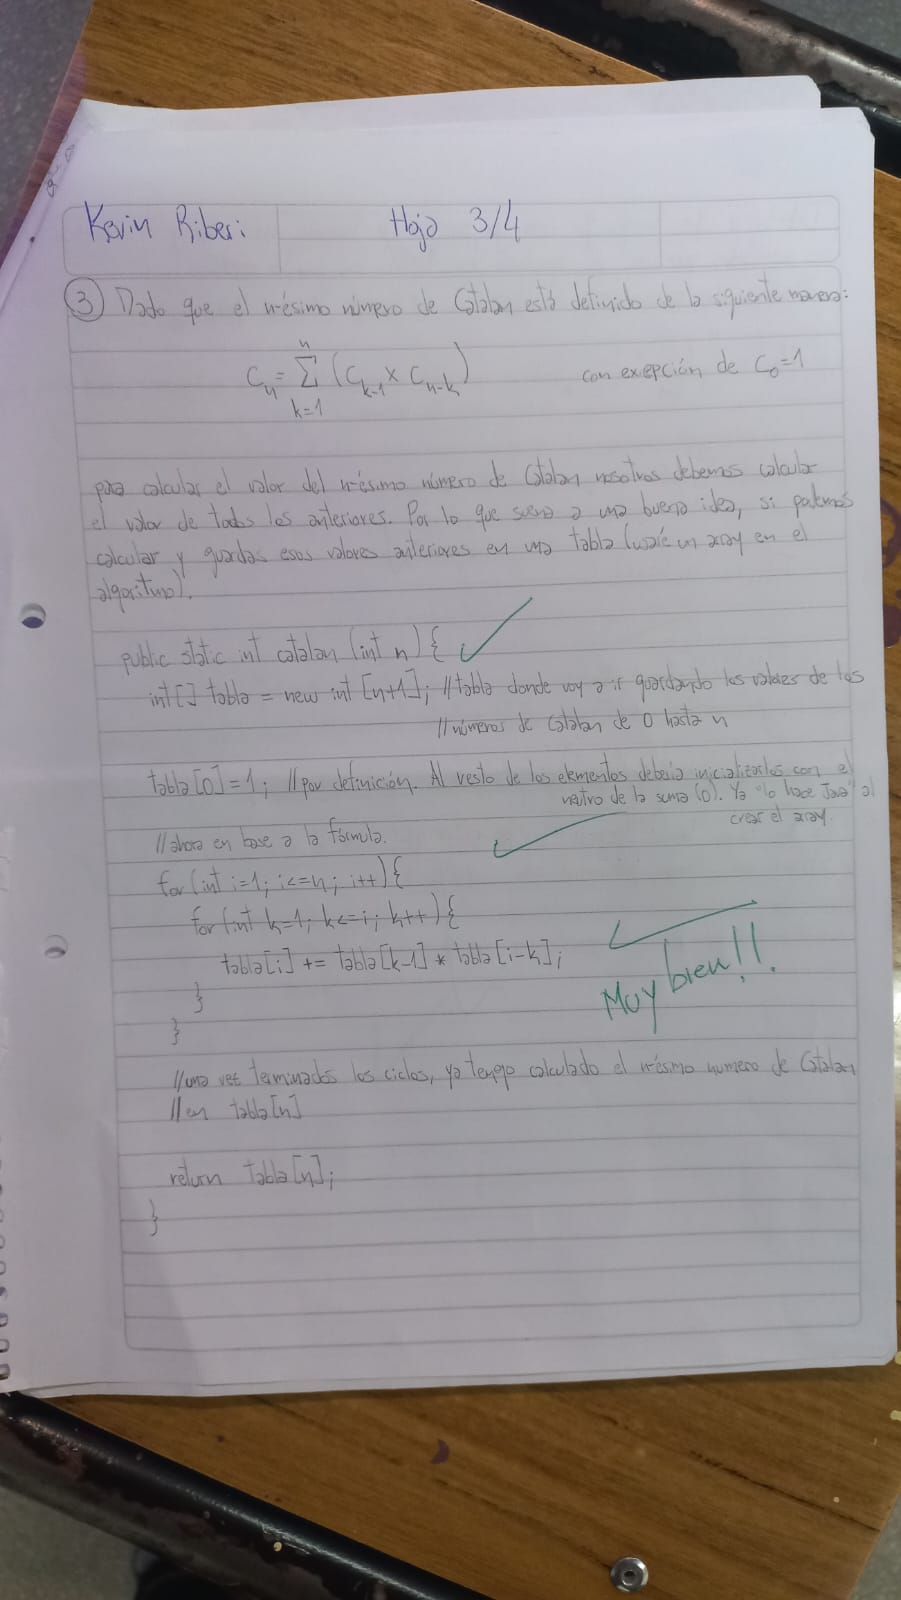 Kevin Riberi
Hoja 3/4
③ Dado que el n-ésimo número de Catalan está definido de la siguiente manera:
Cn = Σ (k=1 → n) (Ck-1 × Cn-k) con exepción de C0=1
para calcular el valor del n-ésimo número de Catalan nosotros debemos calcular
el valor de todos los anteriores. Por lo que suena a una buena idea, si podemos
calcular y guardar esos valores anteriores en una tabla (usaré un array en el
algoritmo).
public static int catalan (int n) {
int[] tabla = new int [n+1]; //tabla donde voy a ir guardando los valores de los
//números de Catalan de 0 hasta n
tabla[0]=1; //por definición. Al resto de los elementos debería inicializarlos con el
neutro de la suma (0). Ya "lo hace Java" al
crear el array.
//ahora en base a la fórmula.
for (int i=1; i<=n; i++) {
for (int k=1; k<=i; k++) {
tabla[i] += tabla[k-1] * tabla[i-k];
}
}
Muy bien!!
//una vez terminados los ciclos, ya tengo calculado el n-ésimo numero de Catalan
//en tabla[n]
return tabla[n];
}